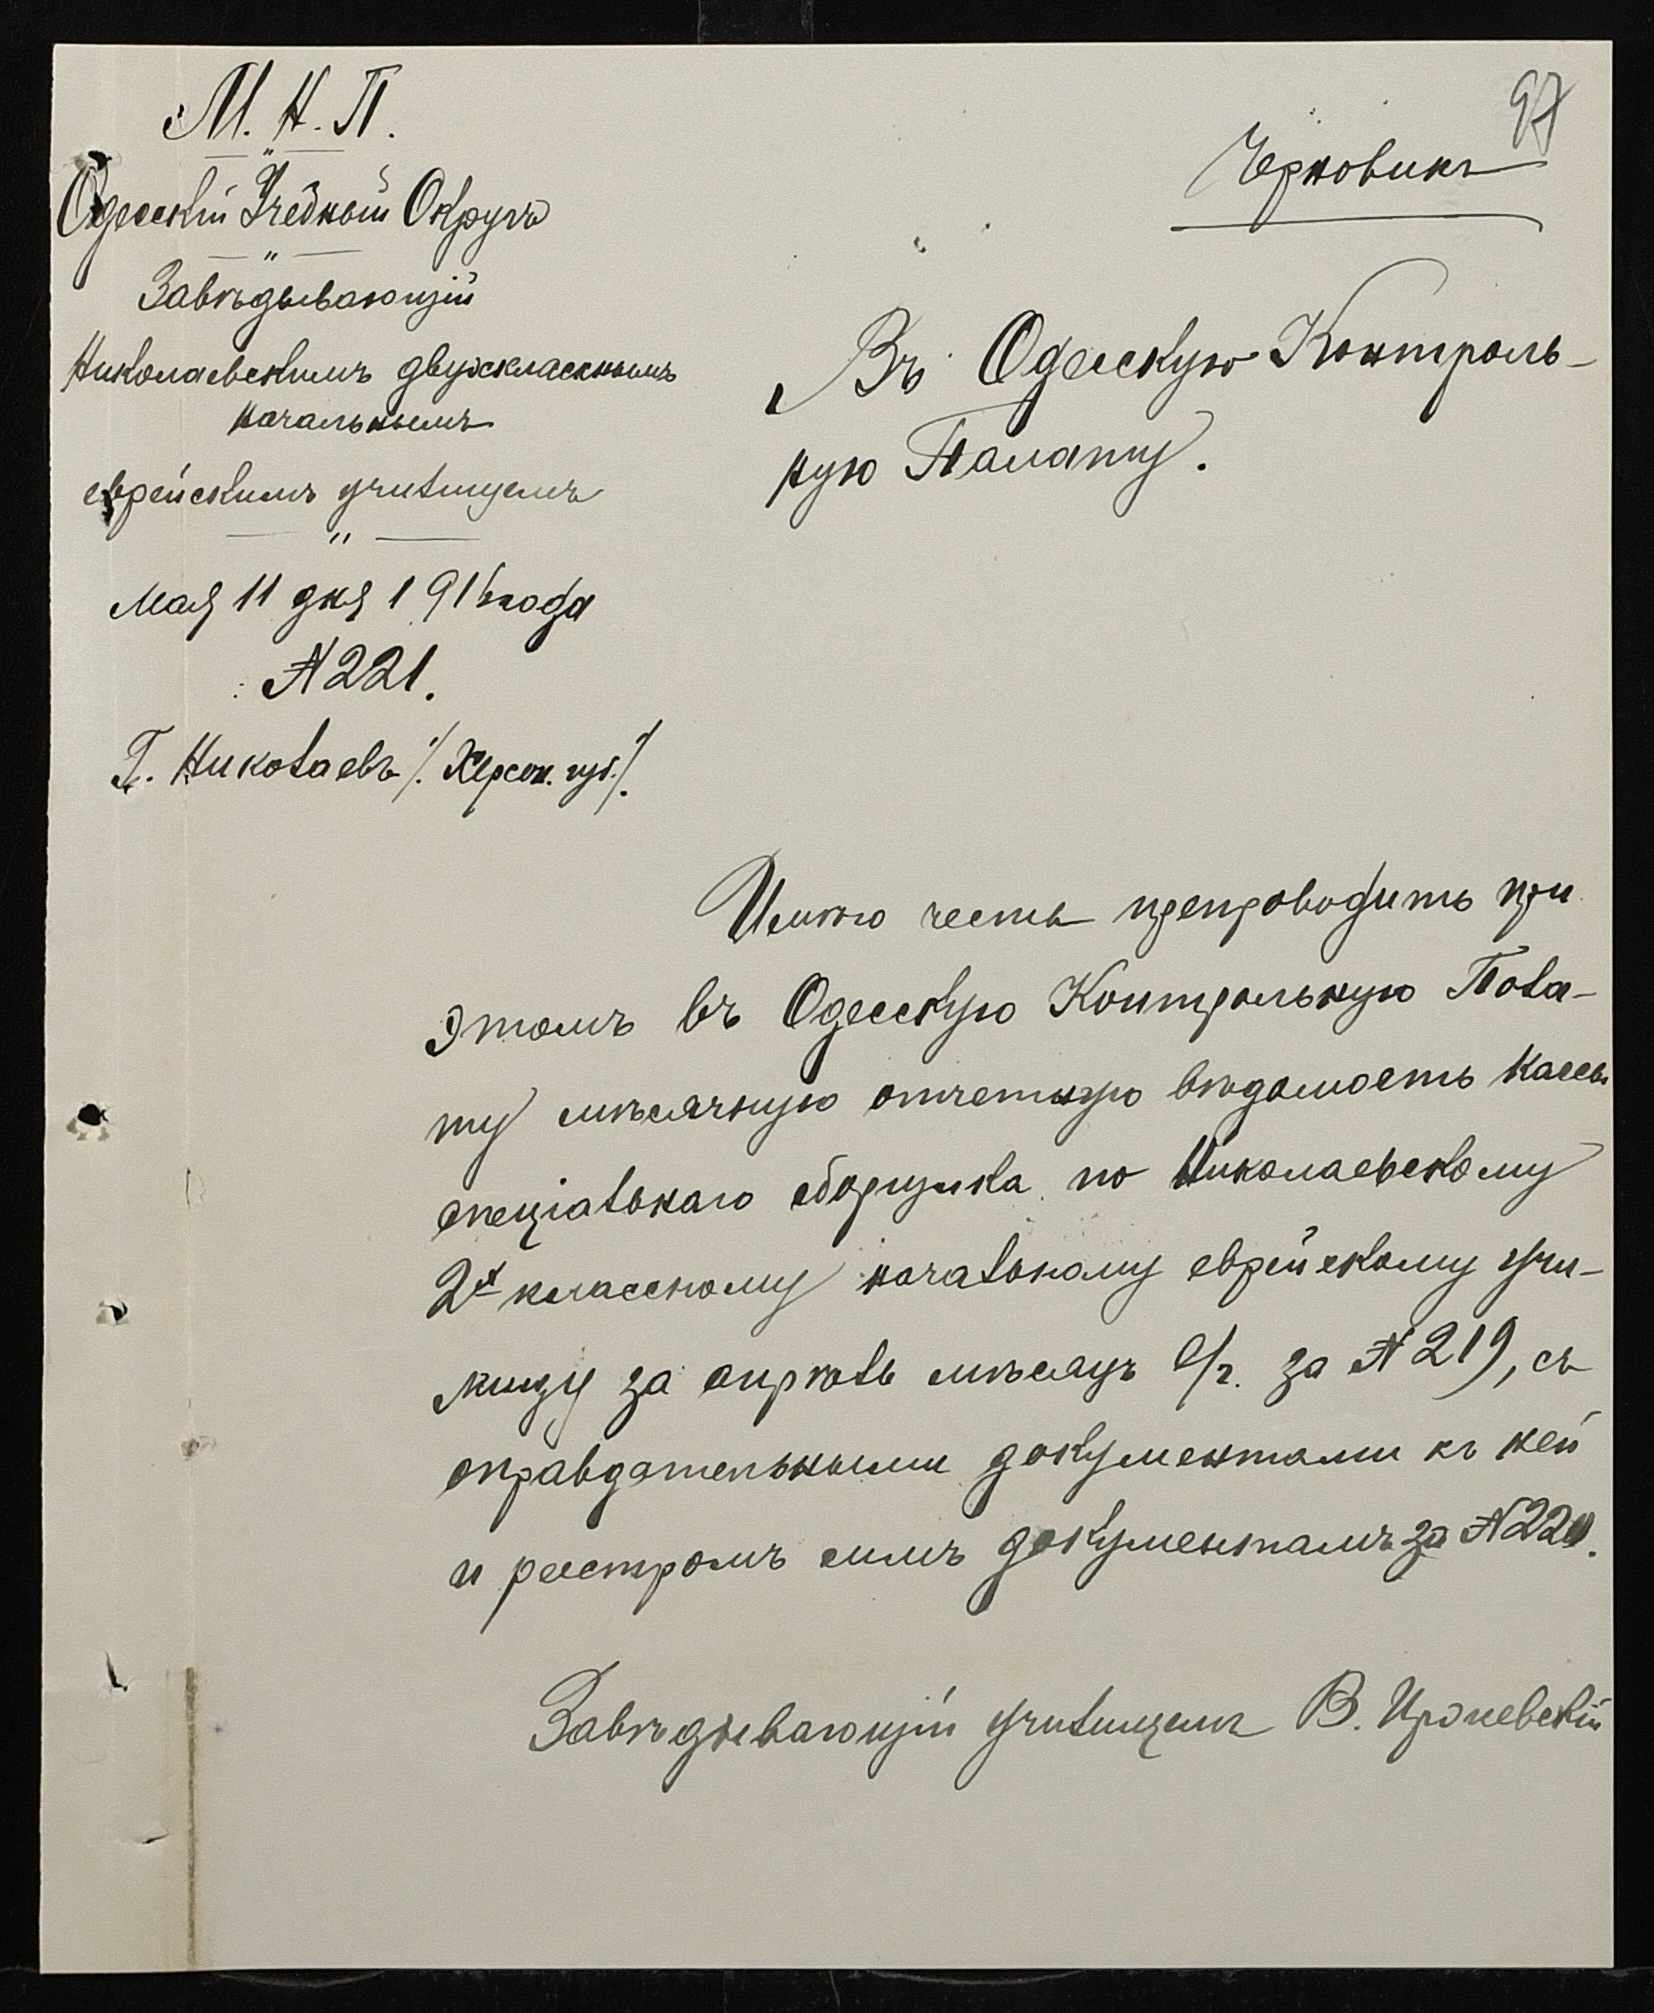 97
Черновикъ
М. Н. П.
Одесскій Учебный Округъ
Завѣдывающій
Николаевскимъ двухкласснымъ
начальнымъ
еврейскимъ училищемъ
Мая 11 дня 1916 года
№ 221.
Г. Николаевъ /. Херсон. губ. /.
Въ Одесскую Контроль-
ную Палату.
Имѣю честь препроводить при
этомъ въ Одесскую Контрольную Пала-
ту мѣсячную отчетную вѣдомость кассы
спеціальнаго сборщика по Николаевскому
2х классному начальному еврейскому учи-
лищу за апрѣль мѣсяцъ с/г. за № 219, съ
оправдательными документами къ ней
и реестромъ симъ документамъ за № 220.
Завѣдывающій училищемъ В.